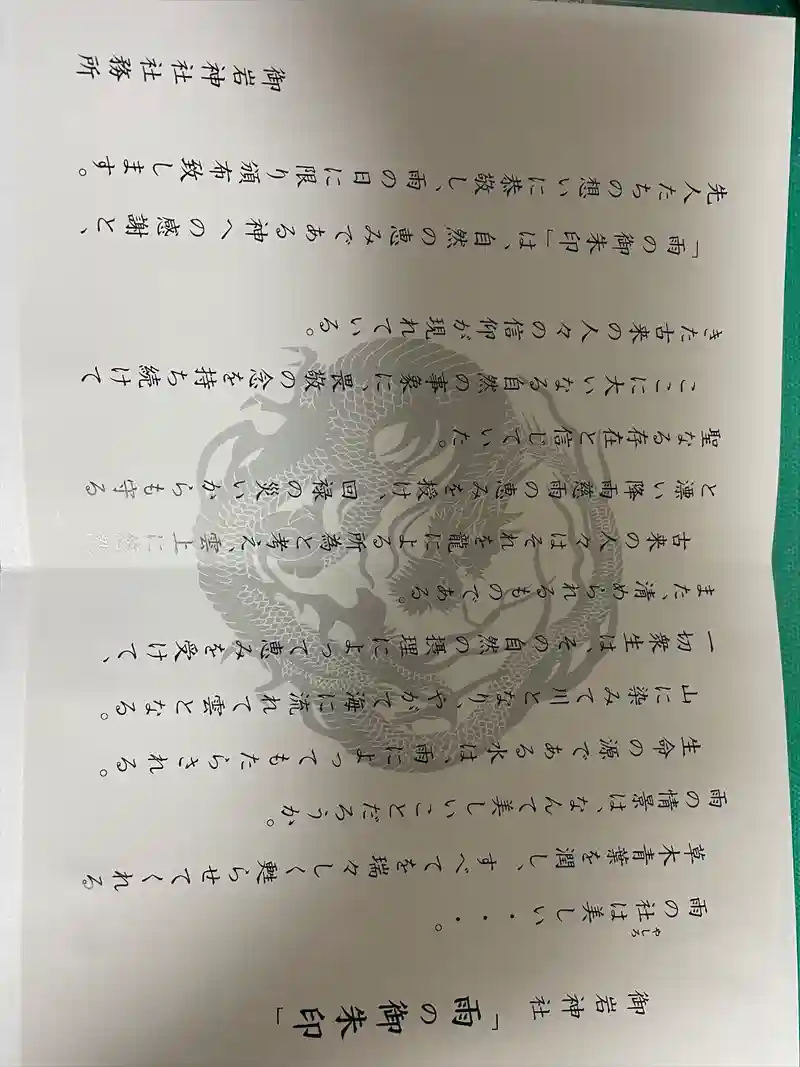 御岩神社
「雨の御朱印」
やしろ
雨の社は美しい・・・。
草木青葉を潤し、すべてを瑞々しく甦らせてくれる
雨の情景は、なんて美しいことだろうか。
生命の源である水は、雨によってもたらされる。
山に染みて川となり、やがて海に流れて雲となる。
一切衆生は、その自然の摂理によって恵みを受けて、
また、清められるものである。
古来の人々はそれを龍による所為と考え、雲上に悠然
と漂い降雨慈雨の恵みを授け、回禄の災いからも守る
聖なる存在と信じていた。
ここに大いなる自然の事象に、畏敬の念を持ち続けて
きた古来の人々の信仰が現れている。
「雨の御朱印」は、自然の恵みである神への感謝と、
先人たちの想いに恭敬し、雨の日に限り頒布致します。
御岩神社社務所